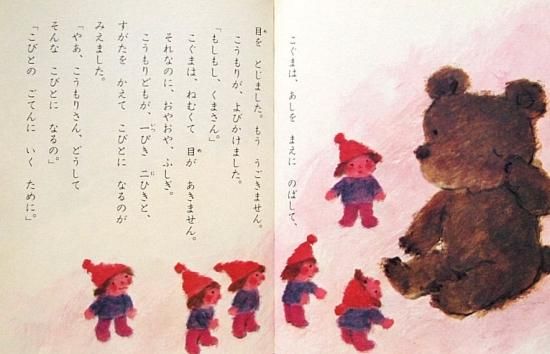 こぐまは、あしを まえに のばして、
目を とじました。もう うごきません。
こうもりが、よびかけました。
「もしもし、くまさん。」
こぐまは、ねむくて 目が あきません。
それなのに、おやおや、ふしぎ。
こうもりどもが、一ぴき 二ひきと、
すがたを かえて こびとに なるのが
みえました。
「やあ、こうもりさん、どうして
そんな こびとに なるの。」
「こびとの ごてんに いく ために。」